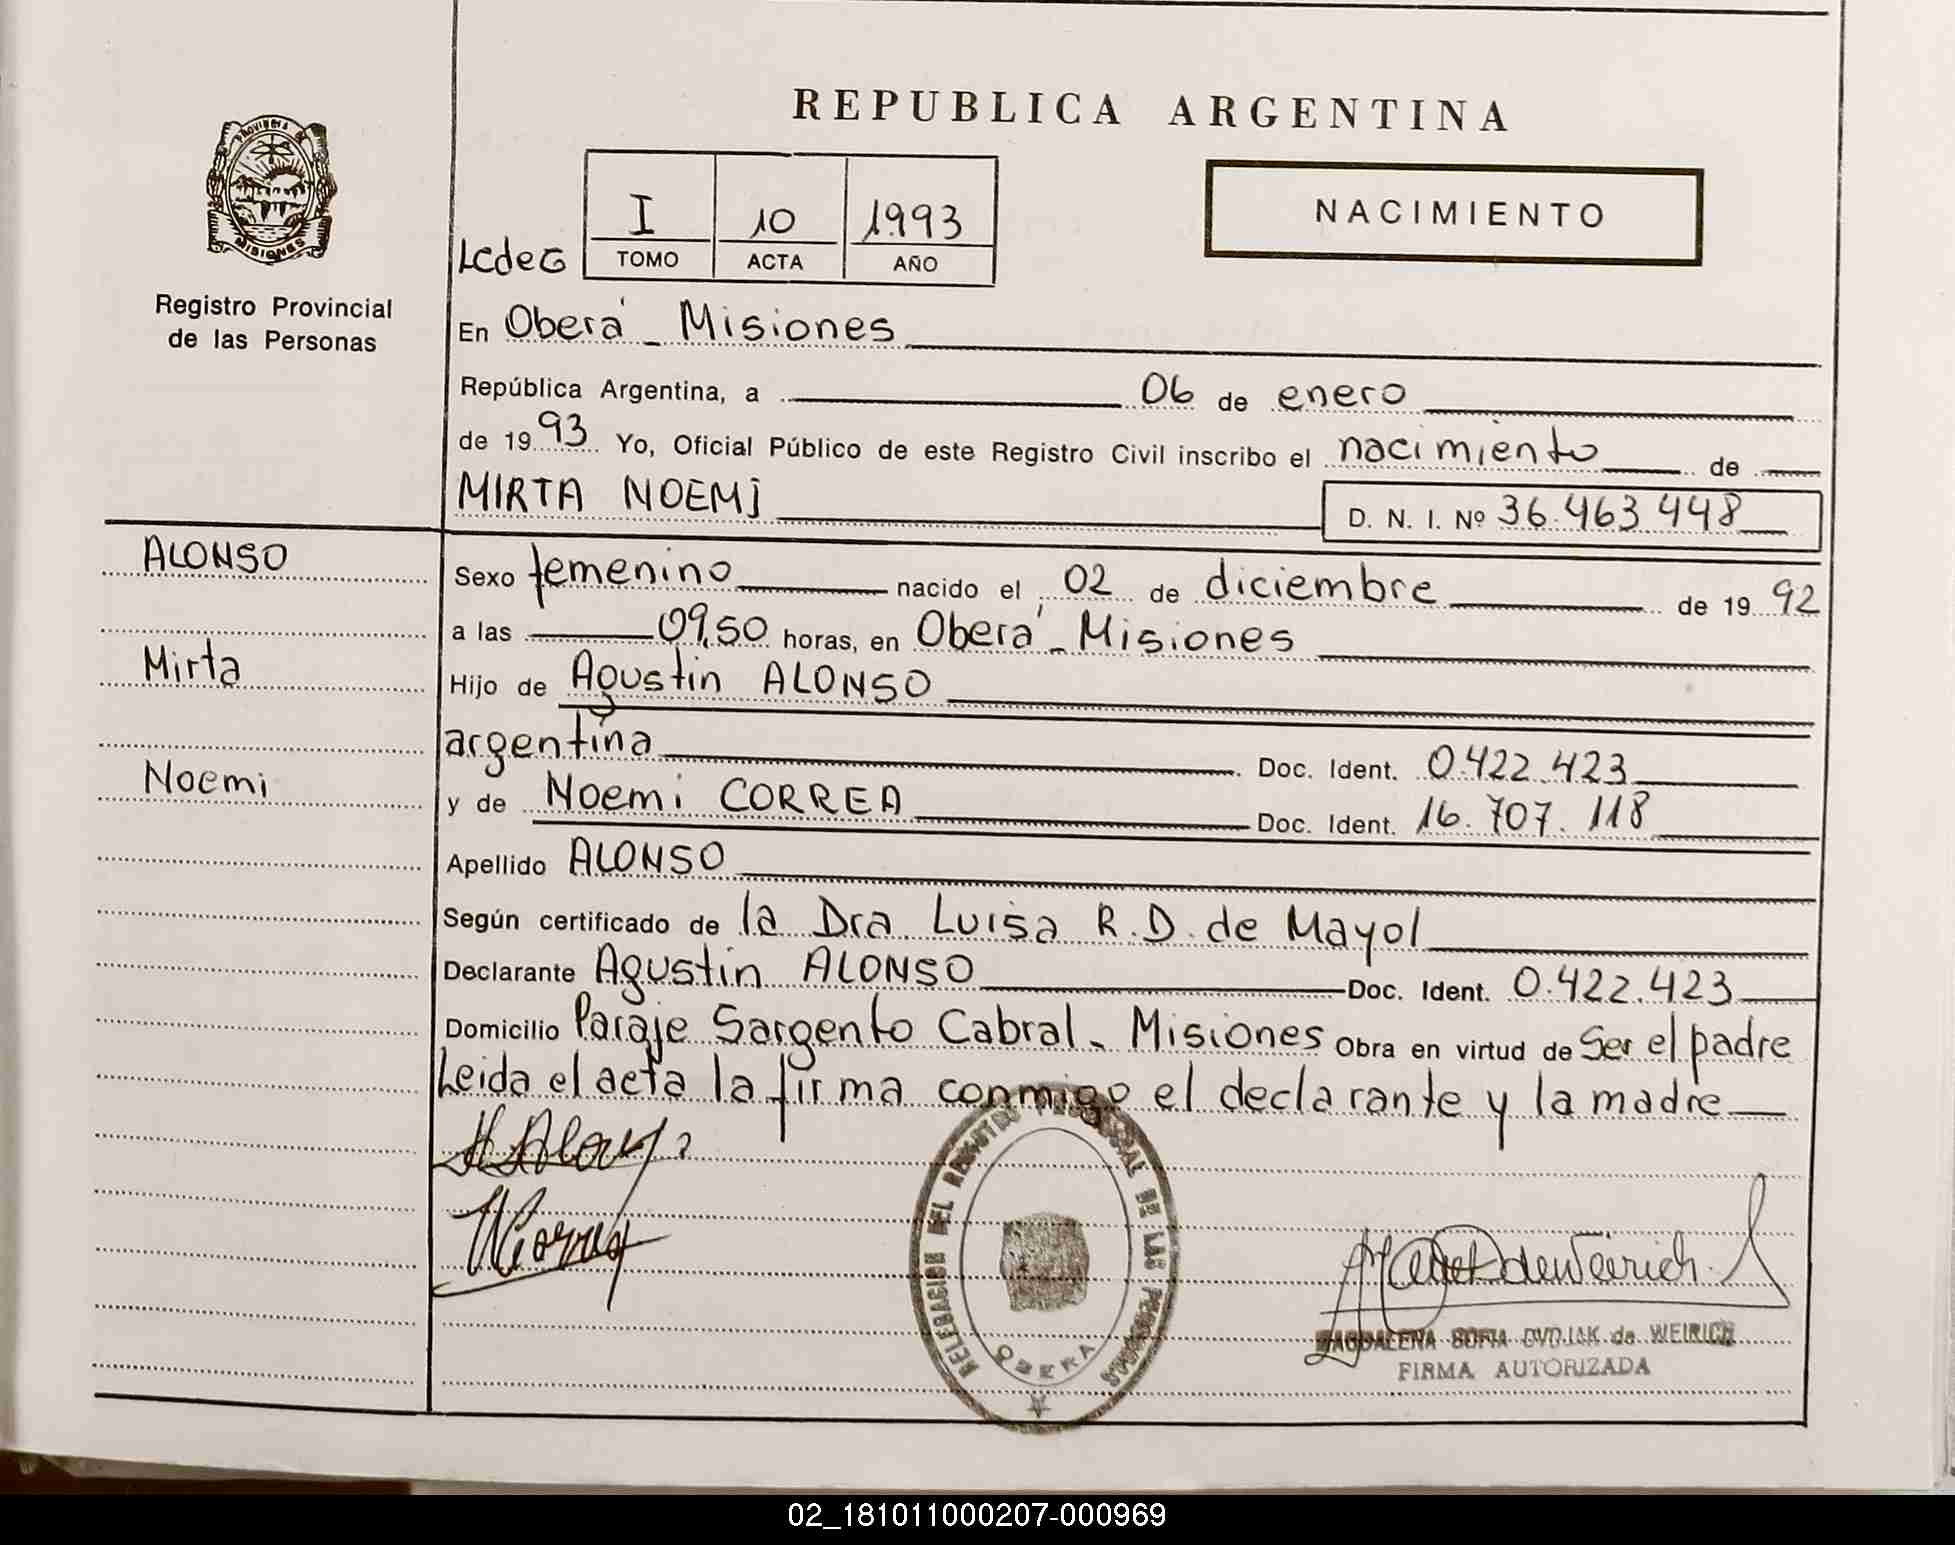 REPUBLICA ARGENTINA
PROVINCIA DE MISIONES
Registro Provincial
de las Personas
NACIMIENTO
LCdeG I 10 1993
TOMO ACTA AÑO
En Oberá _ Misiones
República Argentina, a 06 de enero
de 1993 Yo, Oficial Público de este Registro Civil inscribo el nacimiento de
MIRTA NOEMI D. N. I. Nº 36.463.448
ALONSO
Mirta
Noemi
Sexo femenino nacido el 02 de diciembre de 1992
a las 09,50 horas, en Oberá _ Misiones
Hijo de Agustin ALONSO
argentina Doc. Ident. 0.422.423
y de Noemi CORREA Doc. Ident. 16.707.118
Apellido ALONSO
Según certificado de la Dra Luisa R.D. de Mayol
Declarante Agustin ALONSO Doc. Ident. 0.422.423
Domicilio Paraje Sargento Cabral _ Misiones Obra en virtud de Ser el padre
Leida el acta la firma conmigo el declarante y la madre
DELEGACION DEL REGISTRO PROVINCIAL DE LAS PERSONAS
OBERA
MAGDALENA SOFIA DVDJAK de WEIRICH
FIRMA AUTORIZADA
02_181011000207-000969